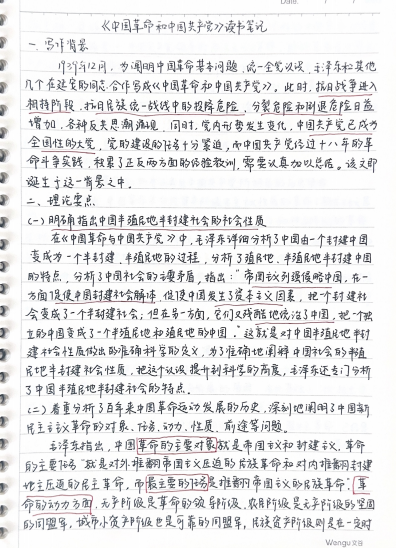 《中国革命和中国共产党》读书笔记
一、写作背景
1939年12月,为阐明中国革命基本问题,统一全党认识,毛泽东和其他
几个在延安的同志合作写成《中国革命和中国共产党》。此时,抗日战争进入
相持阶段,抗日民族统一战线中的投降危险、分裂危险和倒退危险日益
增加,各种反共思潮涌现,同时,党内形势发生变化,中国共产党已成为
全国性的大党,党的建设的任务十分紧迫,而中国共产党经过十八年的革
命斗争实践,积累了正反两方面的经验教训,需要认真加以总结。该文即
诞生于这一背景之中。
二、理论要点
(一)明确指出中国半殖民地半封建社会的社会性质
在《中国革命与中国共产党》中,毛泽东详细分析了中国由一个封建中国
变成为一个半封建、半殖民地的过程,分析了殖民地、半殖民地半封建中国
的特点,分析了中国社会的主要矛盾,指出:"帝国主义列强侵略中国,在一
方面促使中国封建社会解体,促使中国发生了资本主义因素,把一个封建社
会变成了一个半封建社会,但在另一方面,它们又残酷地统治了中国,把一个独
立的中国变成了一个半殖民地和殖民地的中国。"这就是对中国半殖民地半封
建社会性质做出的准确科学的定义,为了准确地阐释中国社会的半殖
民地半封建社会性质,把这个认识提升到科学的高度,毛泽东还专门分析
了中国半殖民地半封建社会的特点。
(二)着重分析了百年来中国革命运动发展的历史,深刻地阐明了中国新
民主主义革命的对象、任务、动力、性质、前途等问题。
毛泽东指出,中国革命的主要对象就是帝国主义和封建主义,革命
的主要任务"就是对外推翻帝国主义压迫的民族革命和对内推翻封建
地主压迫的民主革命,而最主要的任务是推翻帝国主义的民族革命"。革
命的动力方面,无产阶级是革命的领导阶级,农民阶级是无产阶级的坚固
的同盟军,城市小资产阶级也是可靠的同盟军,民族资产阶级则是在一定时
Wangu